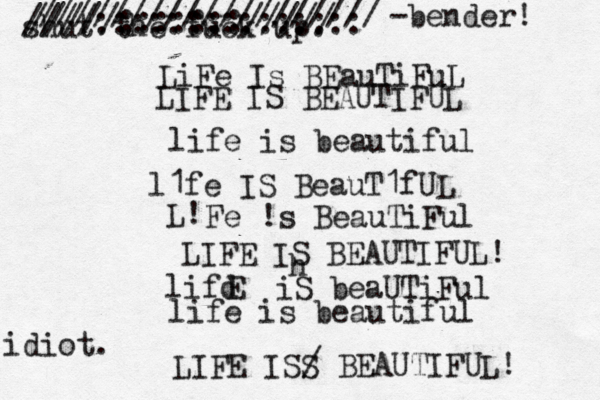 shut the fuck up... -bender!
LiFe Is BEauTiFuL
LIFE IS BEAUTIFUL
life is beautiful
l1fe IS BeauT1fUL
L!Fe !s BeauTiFul
LIFE IS BEAUTIFUL!
lifE iS beaUTiFul
life is beautiful
idiot.
LIFE ISS BEAUTIFUL!